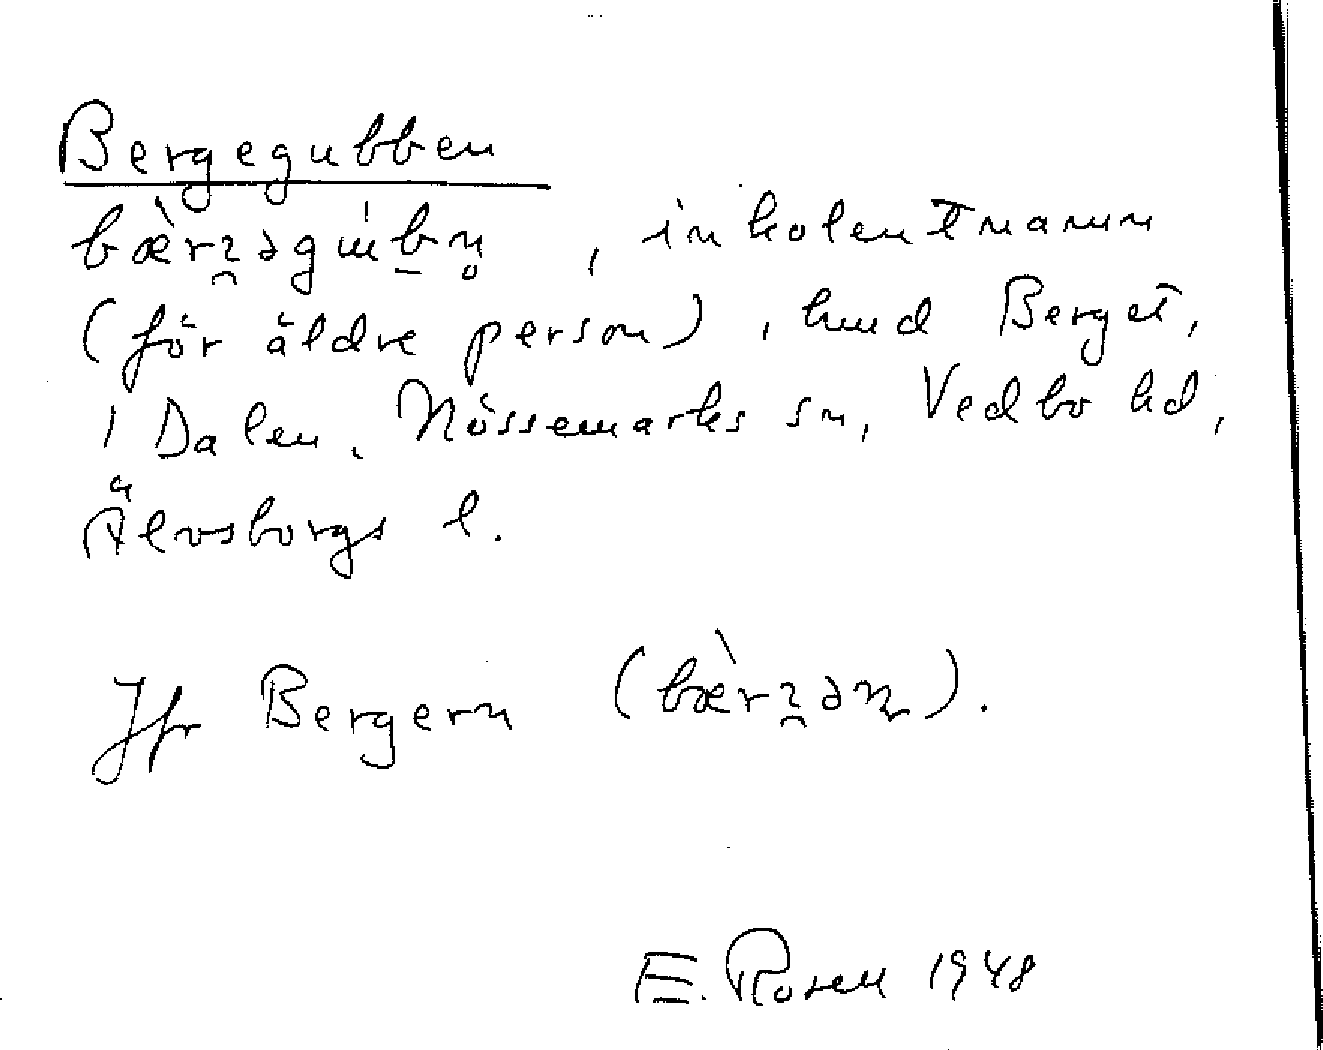 Bergegubben
, inkolentnamn
(för äldre person), hmd Berget,
i Dalen, Nössemarks sn, Vedbo hd,
Älvsborgs l.
Jfr Bergern
E. Rosell 1948